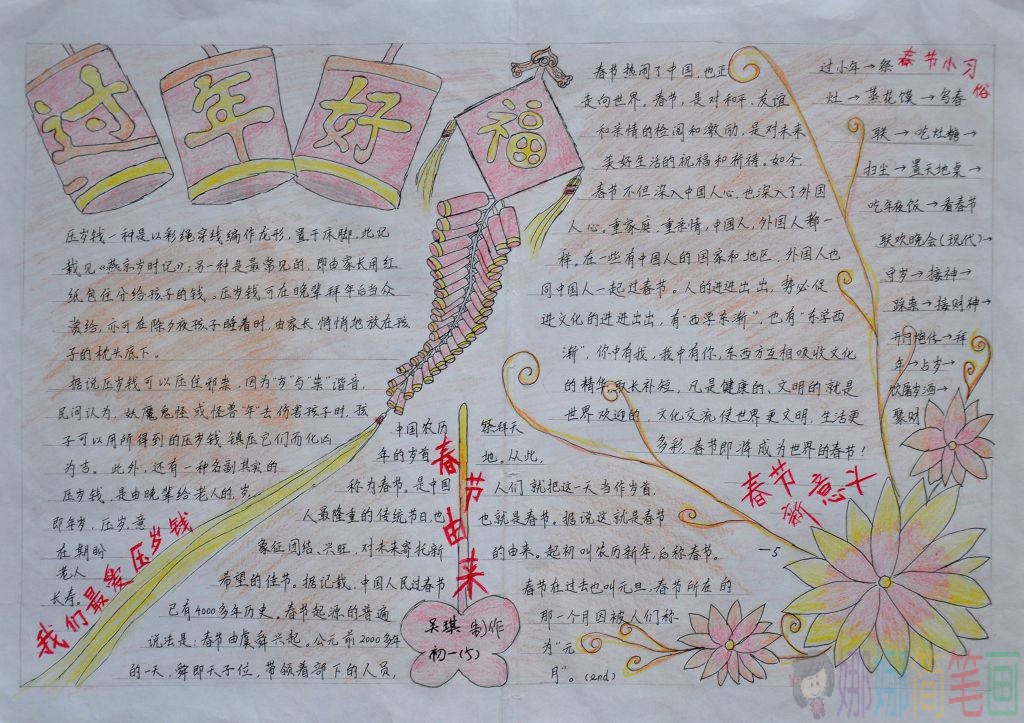 过年好
福
压岁钱一种是以彩绳穿线编作龙形，置于床脚，此记
载见《燕京岁时记》；另一种是最常见的，即由家长用红
纸包住分给孩子的钱。压岁钱可在晚辈拜年后当众
赏给，亦可在除夕夜孩子睡着时，由家长悄悄地放在孩
子的枕头底下。
据说压岁钱可以压住邪祟，因为"岁"与"祟"谐音，
民间认为，妖魔鬼怪或怪兽"年"去伤害孩子时，孩
子可以用所得到的压岁钱镇压它们而化凶
为吉。此外，还有一种名副其实的
压岁钱，是由晚辈给老人的，岁
即年岁，压岁，意
在期盼
老人
长寿。
我们最爱压岁钱
中国农历
年的岁首
称为春节。是中国
人最隆重的传统节日，也
象征团结、兴旺，对未来寄托新
希望的佳节。据记载，中国人民过春节
已有4000多年历史。春节起源的普遍
说法是，春节由虞舜兴起。公元前2000多年
的一天，舜即天子位，带领着部下的人员，
春节由来
祭拜天
地。从此，
人们就把这一天当作岁首，
也就是春节。据说这就是春节
的由来。起初叫农历新年，后称春节。
春节在过去也叫元旦，春节所在的
那一个月因被人们称
为"元
月"。(end)
吴琪 制作
初一(5)
春节热闹了中国，也正
走向世界。春节，是对和平、友谊
和亲情的检阅和激励，是对未来
美好生活的祝福和祈祷。如今，
春节不但深入中国人心，也深入了外国
人心。重家庭、重亲情，中国人、外国人都一
样。在一些有中国人的国家和地区，外国人也
同中国人一起过春节。人的进进出出，势必促
进文化的进进出出，有"西学东渐"，也有"东学西
渐"，你中有我，我中有你，东西方互相吸收文化
的精华，取长补短，凡是健康的、文明的就是
世界欢迎的，文化交流使世界更文明，生活更
多彩，春节即将成为世界的春节！
春节新意头
春节小习俗
过小年→祭
灶→蒸花馍→写春
联→吃灶糖→
扫尘→置天地桌→
吃年夜饭→看春节
联欢晚会(现代)→
守岁→接神→
踩祟→接财神→
开门炮仗→拜
年→占岁→
饮屠苏酒→
聚财
娜娜简笔画